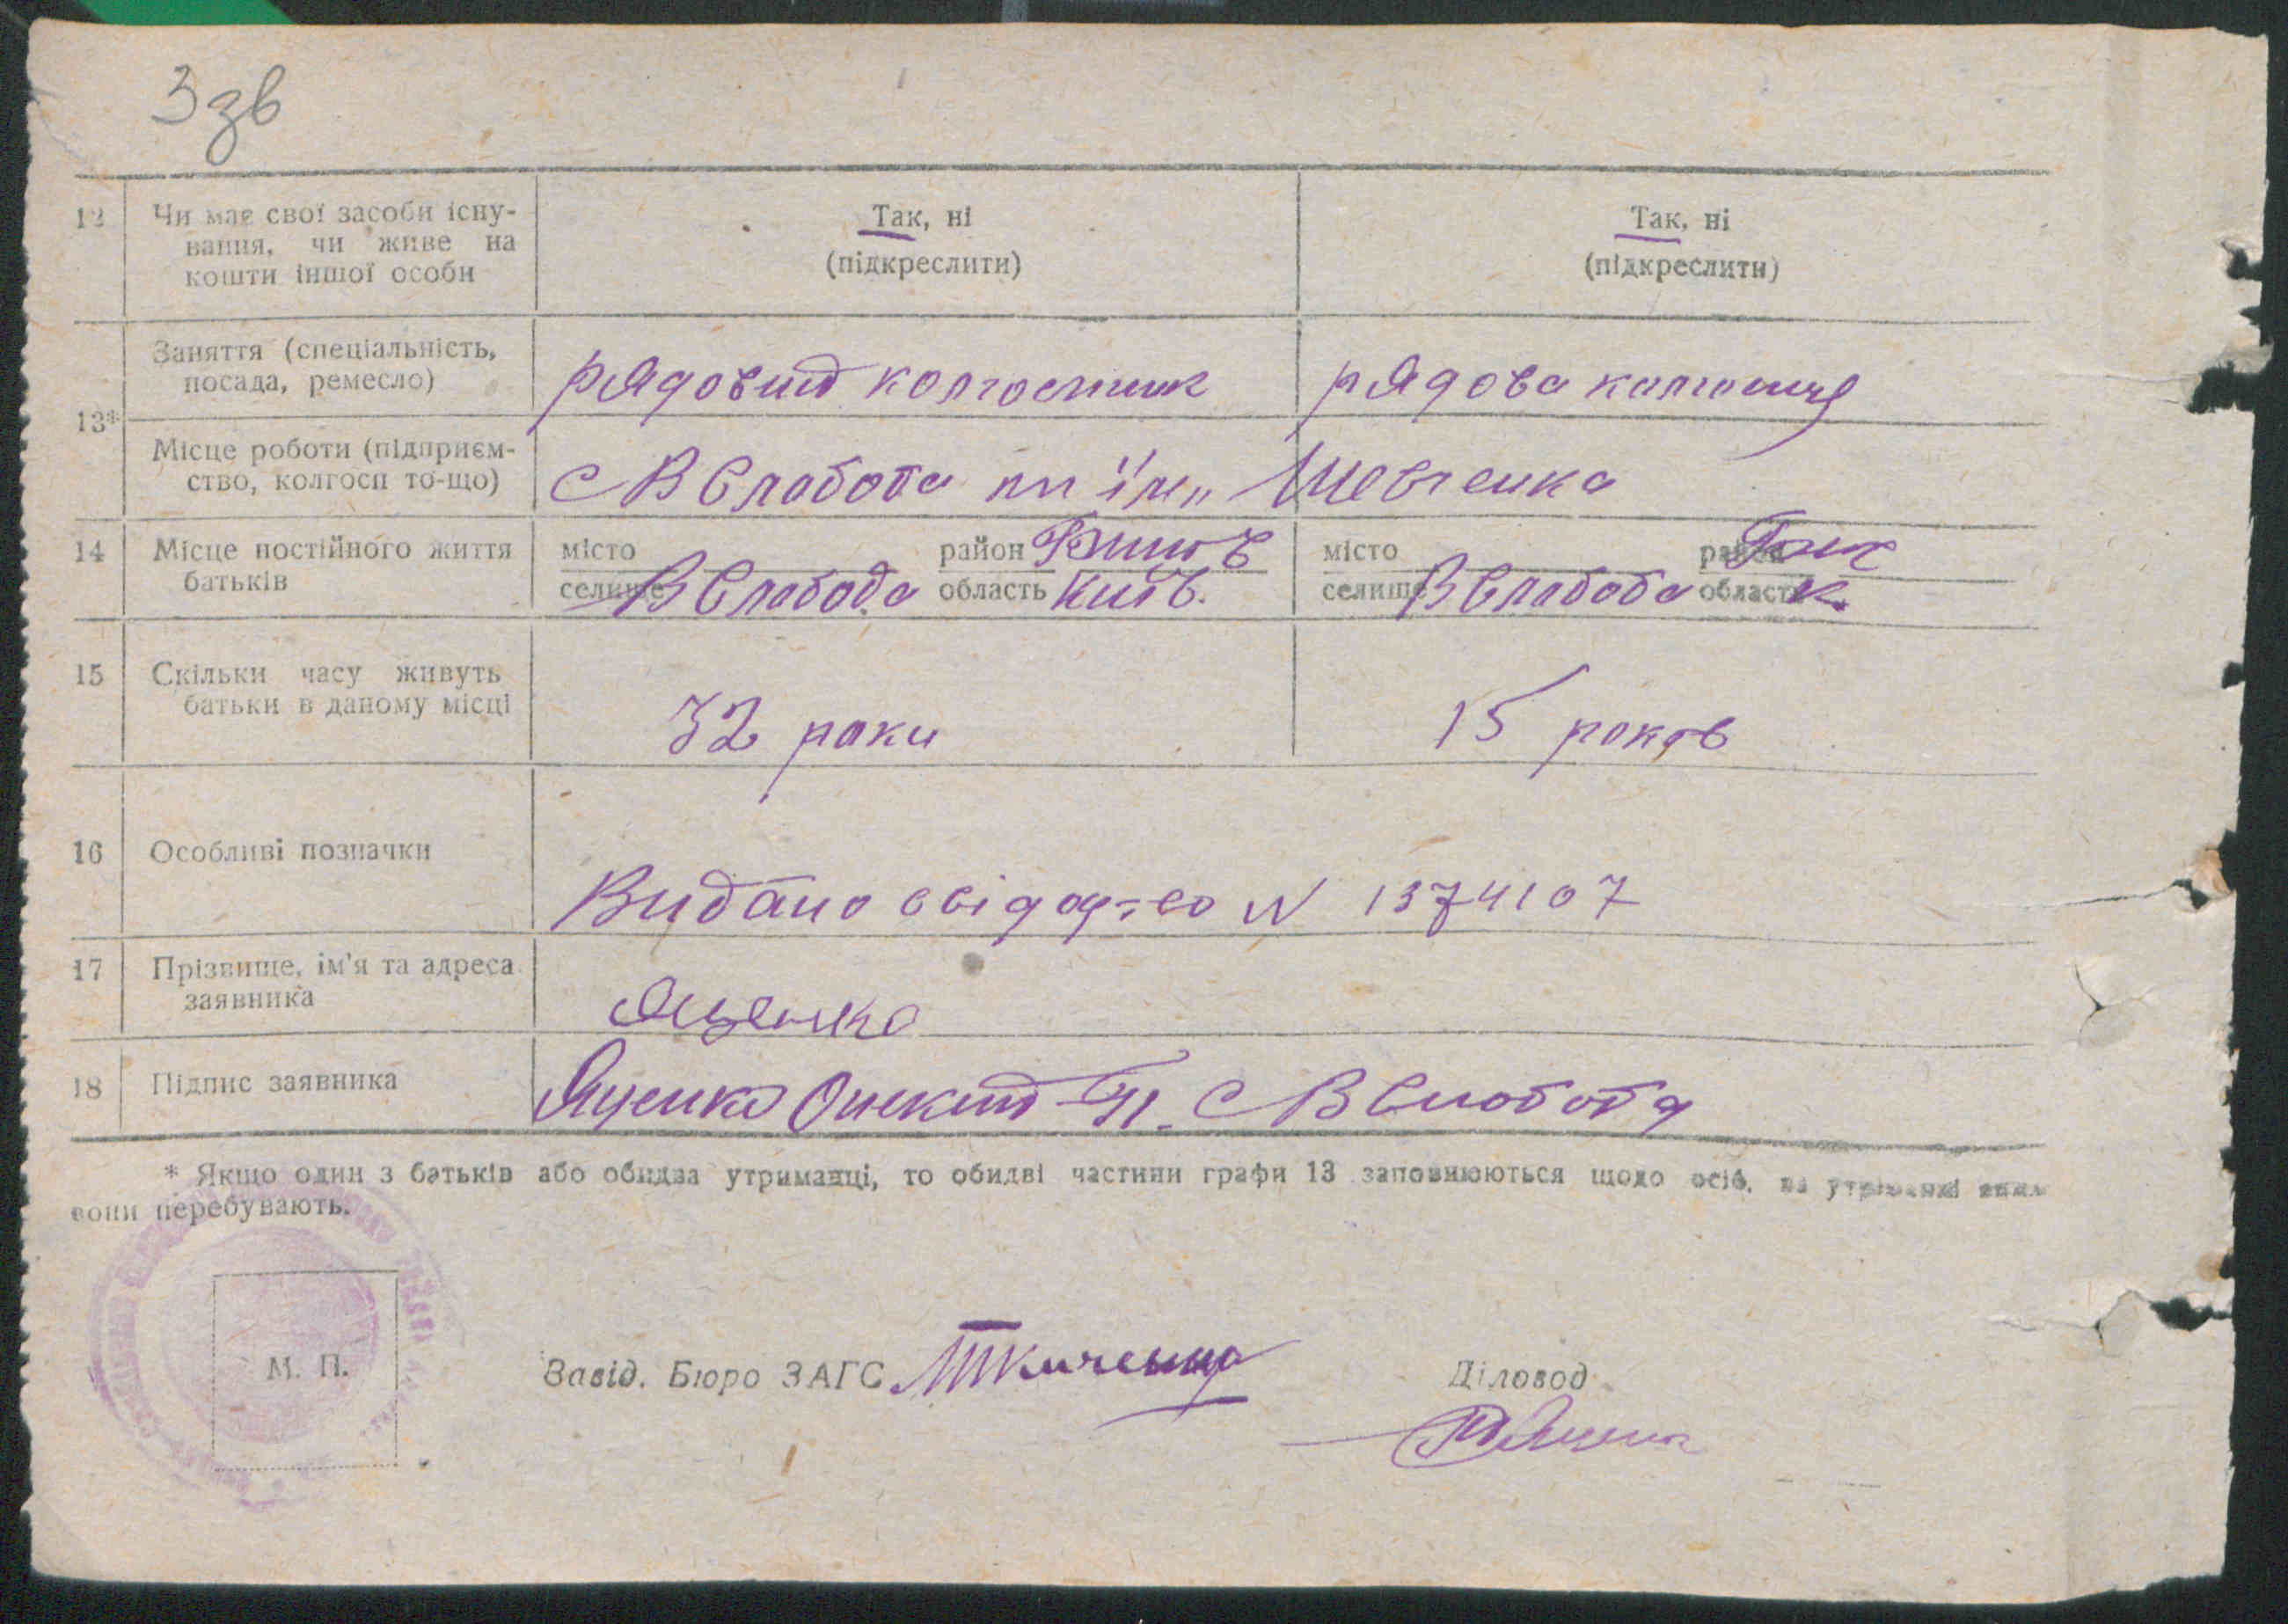 3 зв
12 Чи має свої засоби існу- Так, ні Так, ні
вання, чи живе на (підкреслити) (підкреслити)
кошти іншої особи
Заняття (спеціальність,
посада, ремесло) рядовий колгоспник рядова колгоспн
13*
Місце роботи (підприєм-
ство, колгосп то-що) с В Слабода кл ім„ Шевченка
14 Місце постійного життя місто район місто район
батьків селище В Слабода область Київ. селище В Слабода область К.
15 Скільки часу живуть
батьки в даному місці 32 роки 15 років
16 Особливі позначки
Видано свідоц-во N 1374107
17 Прізвище, ім'я та адреса
заявника Яценко
18 Підпис заявника Яценко П. с В Слобода
* Якщо один з батьків або обидва утриманці, то обидві частини графи 13 заповнюються щодо осіб, на утриманні яких
вони перебувають.
М. П. Завід. Бюро ЗАГС Діловод